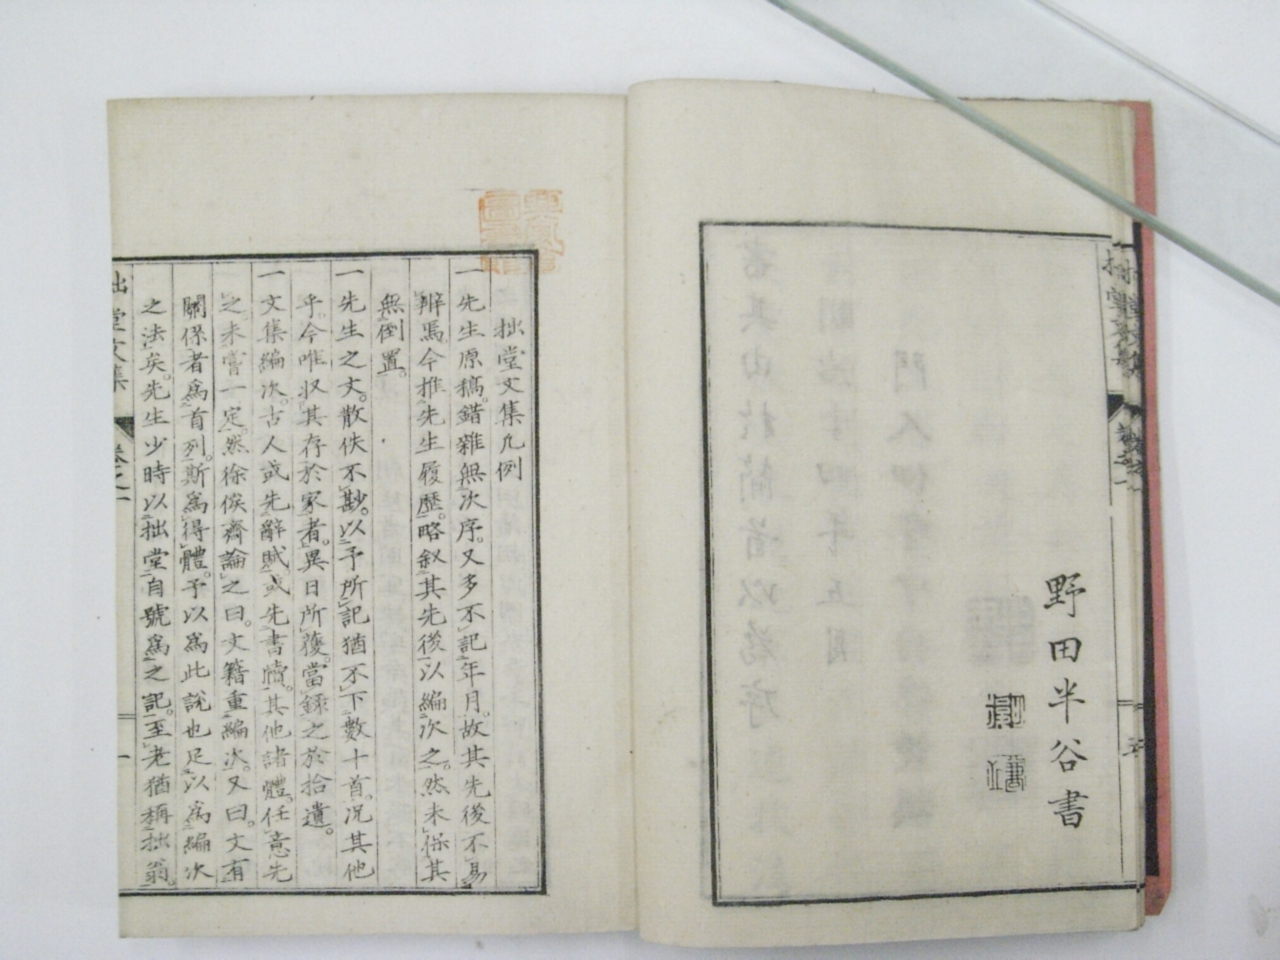 野田半谷書
拙堂文集凡例
一先生原稿。錯雜無次序。又多不記年月。故其先後不易
辨焉今推先生履歷。略叙其先後以編次之。然未保其
無倒置。
一先生之文。散佚不尠。以予所記猶不下數十首。況其他
乎。今唯収其存於家者。異日所獲。當錄之於拾遺。
一文集編次。古人或先辭賦或先書牘。其他諸體。任意先
之未嘗一定然徐俟齋論之曰。文籍重編次。又曰。文有
關係者爲首列。斯爲得體。予以爲此說也足以爲編次
之法矣。先生少時以拙堂自號爲之記。至老猶稱拙翁。
拙堂文集
卷之一
一